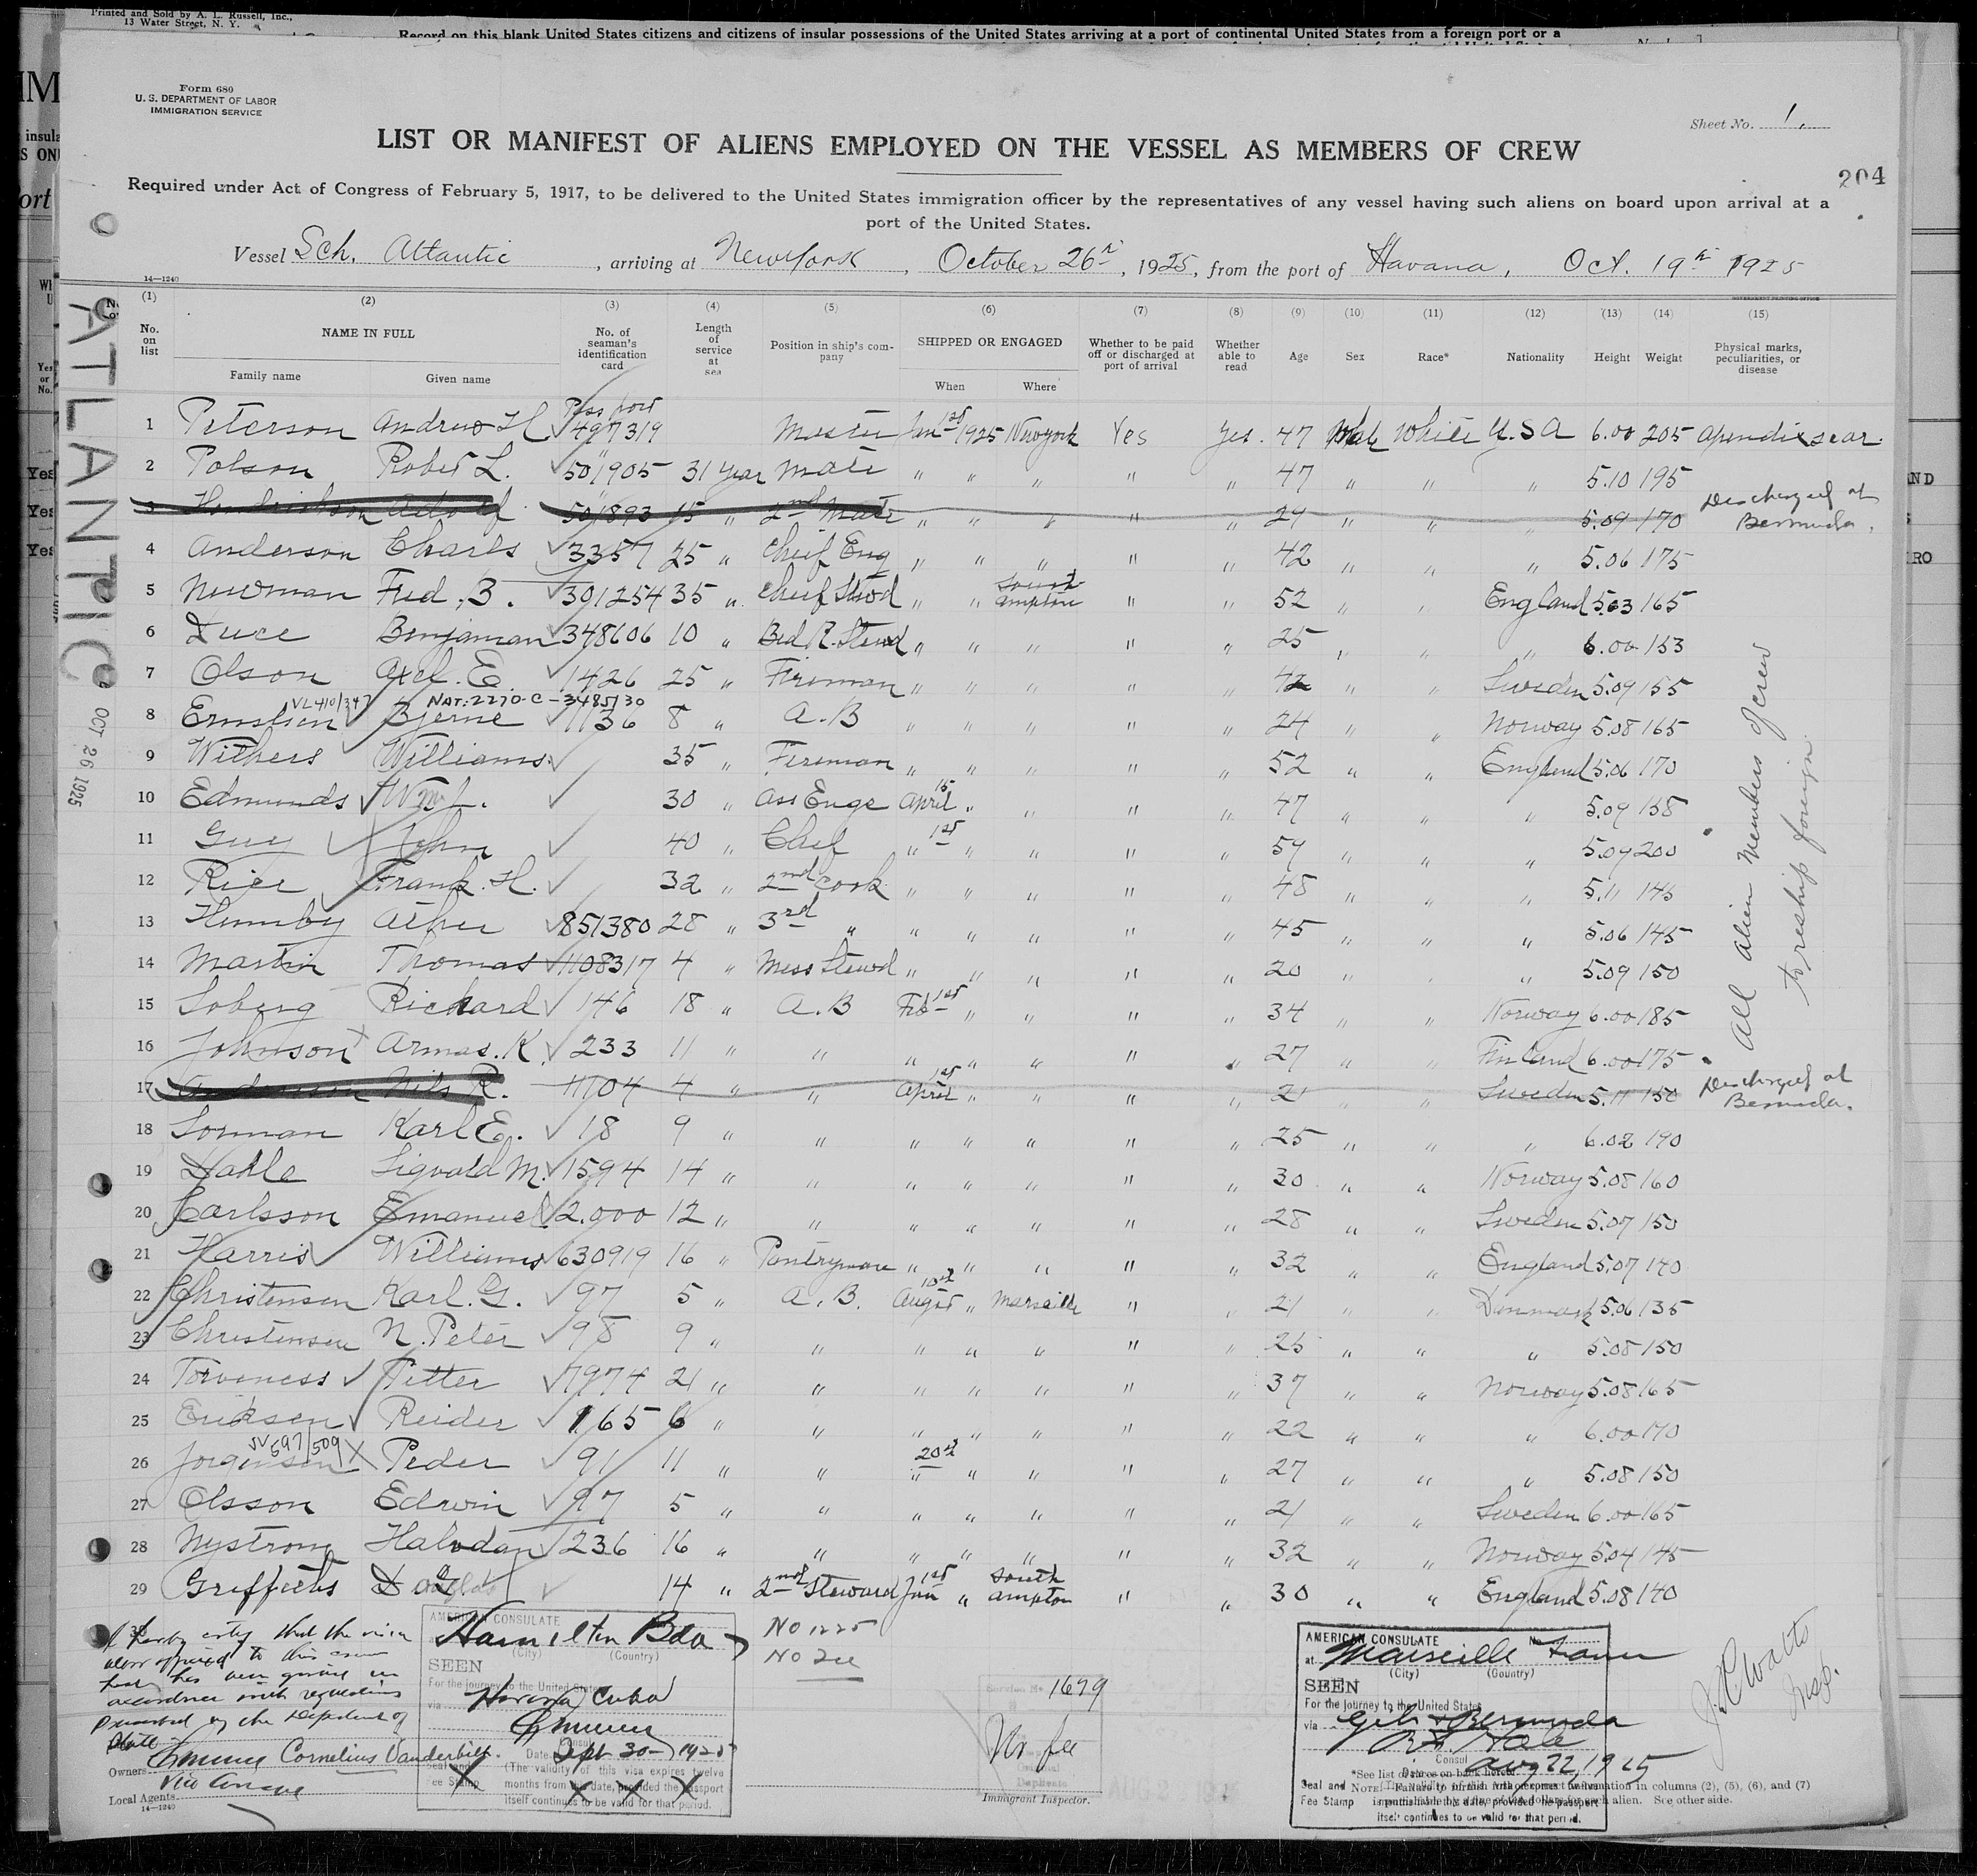 Printed and Sold by A. L. Russell, Inc.,
13 Water Street, N. Y.
Record on this blank United States citizens and citizens of insular possessions of the United States arriving at a port of continental United States from a foreign port or a
Form 680
U. S. DEPARTMENT OF LABOR
IMMIGRATION SERVICE
Sheet No. 1.
LIST OR MANIFEST OF ALIENS EMPLOYED ON THE VESSEL AS MEMBERS OF CREW
204
Required under Act of Congress of February 5, 1917, to be delivered to the United States immigration officer by the representatives of any vessel having such aliens on board upon arrival at a
port of the United States.
Vessel Sch. Atlantic, arriving at New York, October 26th, 1925, from the port of Havana, Oct. 19th 1925
14—1240
GOVERNMENT PRINTING OFFICE
(1) (2) (3) (4) (5) (6) (7) (8) (9) (10) (11) (12) (13) (14) (15)
No. on list NAME IN FULL Family name Given name No. of seaman's identification card Length of service at sea Position in ship's company SHIPPED OR ENGAGED When Where Whether to be paid off or discharged at port of arrival Whether able to read Age Sex Race* Nationality Height Weight Physical marks, peculiarities, or disease
ATLANTIC OCT 26 1925
1 Peterson Andrew H Passport 497319 Master Jan 1st 1925 New York Yes Yes. 47 Male White U.S.A 6.00 205 Apendix scar.
2 Polson Robet L. 501905 31 year Mate " " " " " 47 " " " 5.10 195
3 Hendrickson Adolf 501893 15 " 2nd Mate " " " " " 29 " " " 5.09 170 Discharged at Bermuda.
4 Anderson Charls 3357 25 " Chief Eng " " " " " 42 " " " 5.06 175
5 Newman Fred. B. 301254 35 " Chief Stwd " " South ampton " " 52 " " England 5.03 165
6 Luce Benjaman 348606 10 " Bed R. Stewd " " " " " 25 " " " 6.00 153
7 Olson Axel. E. 1426 25 " Fireman " " " " " 42 " " Sweden 5.09 155
VL410/347 NAT: 2270-C-3485/30
8 Ernstsen Bjerne 1136 8 " A.B " " " " " 24 " " Norway 5.08 165
9 Withers Williams 35 " Fireman " " " " " 52 " " England 5.06 170
10 Edmunds Wm. 30 " Ass Enge April 15 " " " " 47 " " " 5.09 158
11 Guy John 40 " Chef " 1st " " " " 59 " " " 5.09 200
12 Rice Frank. H. 32 " 2nd Cook " " " " " 48 " " " 5.11 145
13 851380 28 " 3rd " " " " " " 45 " " " 5.06 145
14 Martin Thomas 1108317 4 " Mess Stewd " " " " " 20 " " " 5.09 150
15 Soberg Richard 146 18 " A.B Feb 1st " " " " 34 " " Norway 6.00 185
16 Johnson Armas. K. 233 11 " " " " " " " 27 " " Finland 6.00 175
17 Anderson Nils R. 1104 4 " " April 1st " " " " 21 " " Sweden 5.11 150 Discharged at Bermuda.
18 Sorman Karl E. 18 9 " " " " " " " 25 " " " 6.02 190
19 Dahle Sigvald M. 1594 14 " " " " " " " 30 " " Norway 5.08 160
20 Carlsson Emanuel 2.000 12 " " " " " " " 28 " " Sweden 5.07 150
21 Harris Williams 630919 16 " Pantryman " " " " " 32 " " England 5.07 140
22 Christensen Karl. G. 97 5 " A.B. August 10th " Marseille " " 21 " " Denmark 5.06 135
23 Christensen N. Peter 98 9 " " " " " " " 25 " " " 5.08 150
24 Torveness Petter 7974 21 " " " " " " " 37 " " Norway 5.08 165
25 Eriksen Reider 165 6 " " " " " " " 22 " " " 6.00 170
597/509
26 Jorgensen Peder 91 11 " " 20th " " " " " 27 " " " 5.08 150
27 Olsson Edwin 97 5 " " " " " " " 21 " " Sweden 6.00 165
28 Nystrom Halvdan 236 16 " " " " " " " 32 " " Norway 5.04 145
29 Griffeths 14 " 2nd Steward Jan 1st " South ampton " " 30 " " England 5.08 140
All alien members of crew
to reship foreign.
30
I hereby certify that the visa
accordance with regulations
prescribed by the Department of
State
Owners Cornelius Vanderbilt.
Local Agents
14—1240
AMERICAN CONSULATE
at Hamilton Bda
(City) (Country)
SEEN
For the journey to the United States
via Havana Cuba
Consul
Date Sept 30 1925
(The validity of this visa expires twelve
months from date, provided the passport
itself continues to be valid for that period.
Seal and
Fee Stamp
No 1225
No Fee
1679
No fee
Immigrant Inspector.
AMERICAN CONSULATE No.
at Marseille France
(City) (Country)
SEEN
For the journey to the United States
via Gib & Bermuda
Consul
Aug 22, 1925
*See list of races on back hereof.
Seal and
Fee Stamp
itself continues to be valid for that period.
NOTE.—Failure to furnish full or correct information in columns (2), (5), (6), and (7)
alien. See other side.
J. R. Watts
Insp.